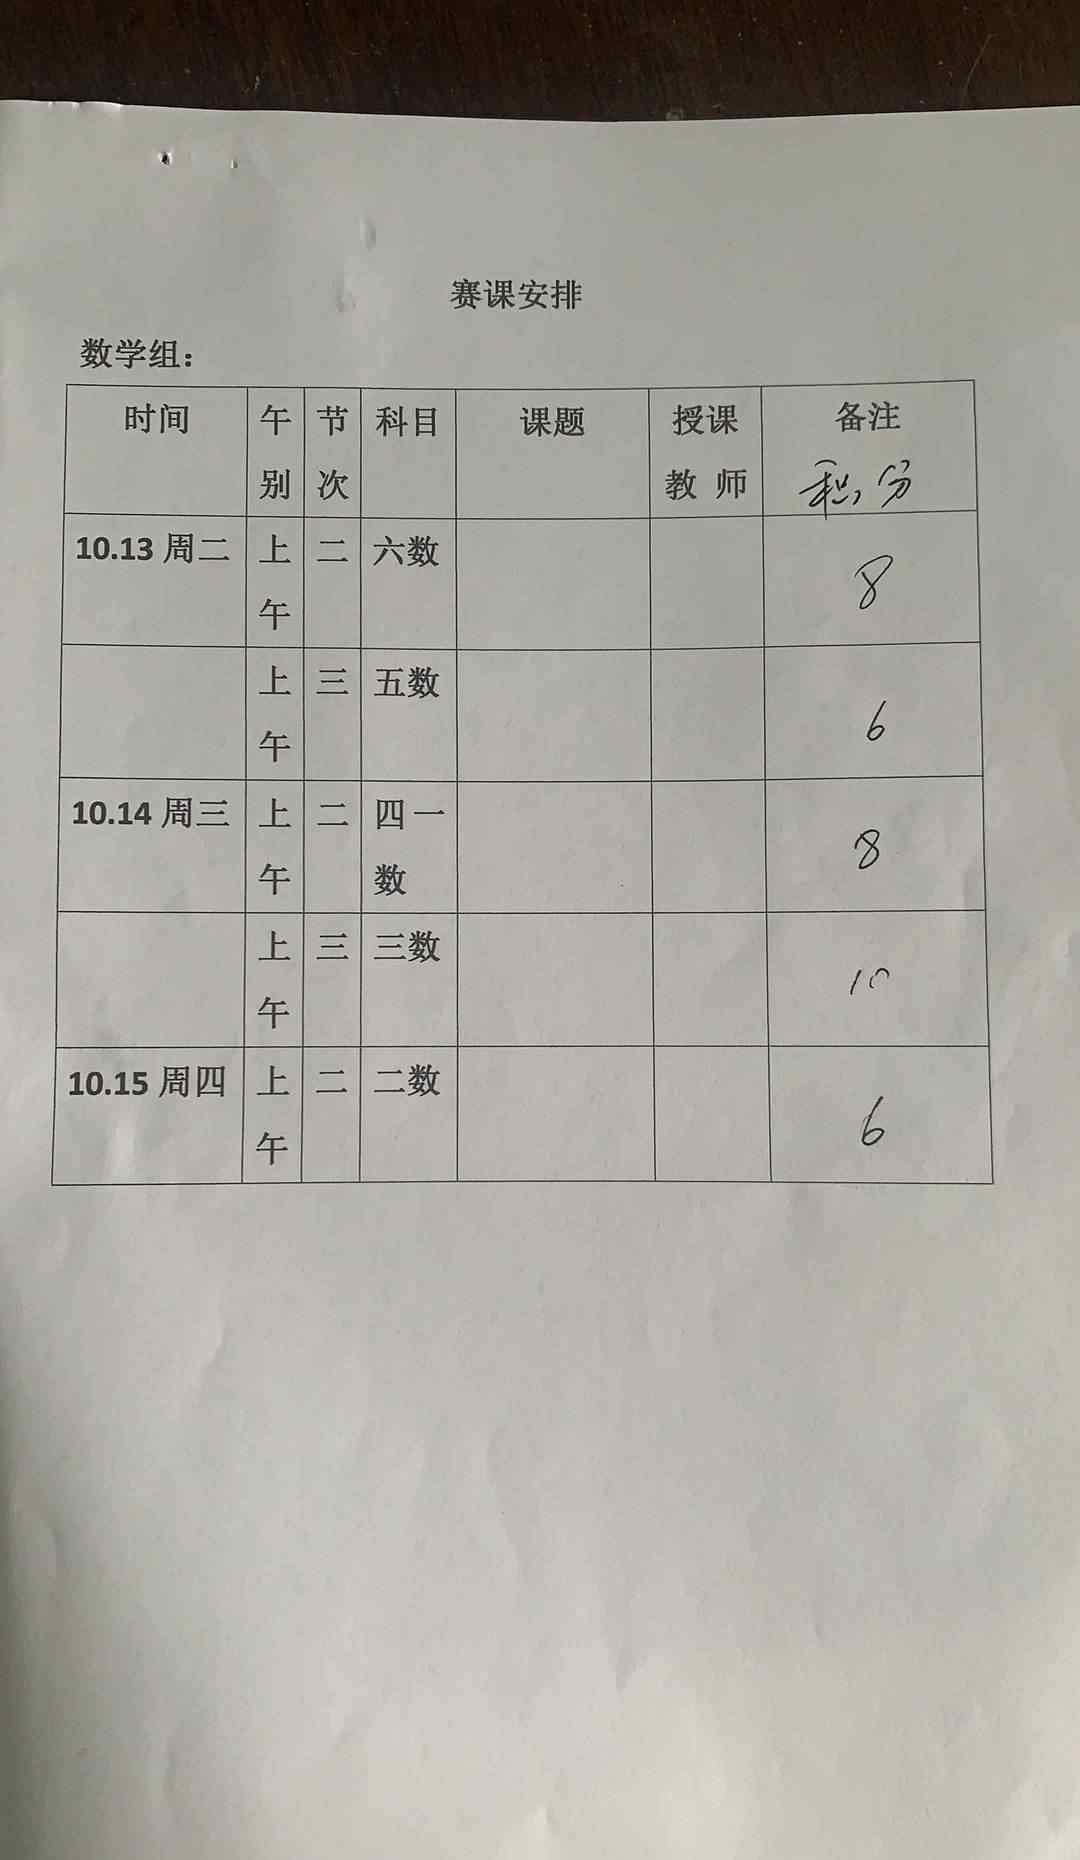 赛课安排
数学组：
时间 午别 节次 科目 课题 授课教师 备注 积分
10.13 周二 上午 二 六数 8
上午 三 五数 6
10.14 周三 上午 二 四一数 8
上午 三 三数 10
10.15 周四 上午 二 二数 6